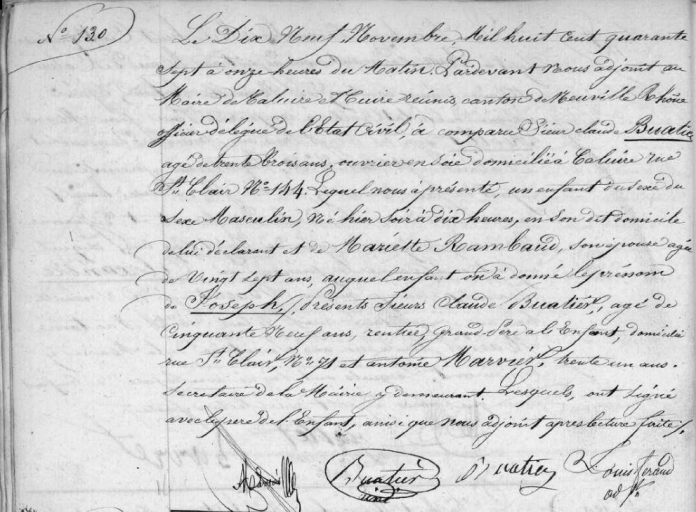 No 130
Le Dix Neuf Novembre, Mil huit cent quarante
sept à onze heures du Matin. Pardevant Nous adjoint au
Maire de Caluire et Cuire réunis, canton de Neuville Rhône
officier délégué de l'Etat Civil, à comparu Sieur claude Buatier
agé de trente trois ans, ouvrier en soie domicilié à Caluire rue
St Clair No 144. Lequel nous à présenté, un enfant du sexe du
Sexe Masculin, Né hier soir à dix heures, en son dit domicile
de lui déclarant et de Mariette Rambaud, son épouse agée
de Vingt sept ans, auquel enfant on à donné le prénom
de Joseph, Présents Sieurs Claude Buatier, agé de
Cinquante Neuf ans, rentier, grand-Père a l'Enfant, domicilié
rue St Clair, No 71 et antoine Marvier, trente un ans.
Secretaire de la Mairie y demeurant. Lesquels, ont signé
avec le père de l'Enfant, ainsi que nous adjoint apres lecture faite.
Buatier Buatier